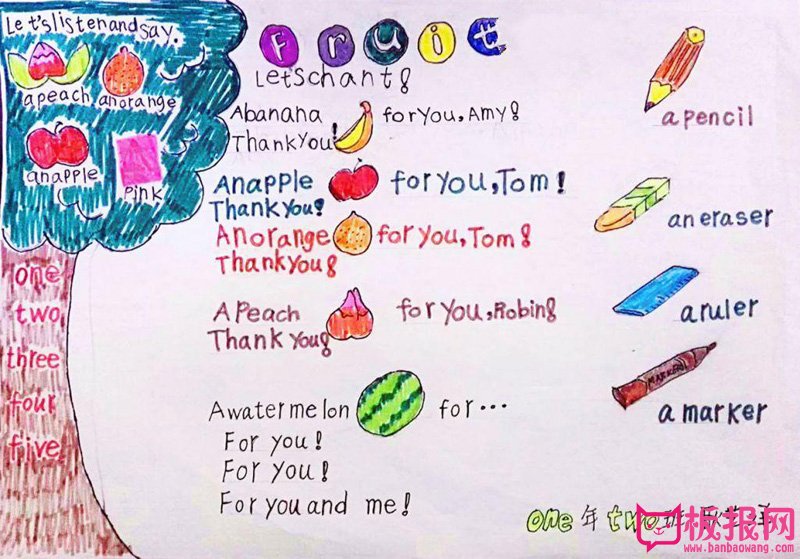 Let's listen and say.
a peach an orange
an apple pink
one
two
three
four
five
Fruit
Let's chant!
A banana for you, Amy!
Thank you!
An apple for you, Tom!
Thank you!
An orange for you, Tom!
Thank you!
A Peach for you, Robin!
Thank you!
A watermelon for...
For you!
For you!
For you and me!
a pencil
an eraser
a ruler
MARKER
a marker
one年two班
板报网
www.banbaowang.com